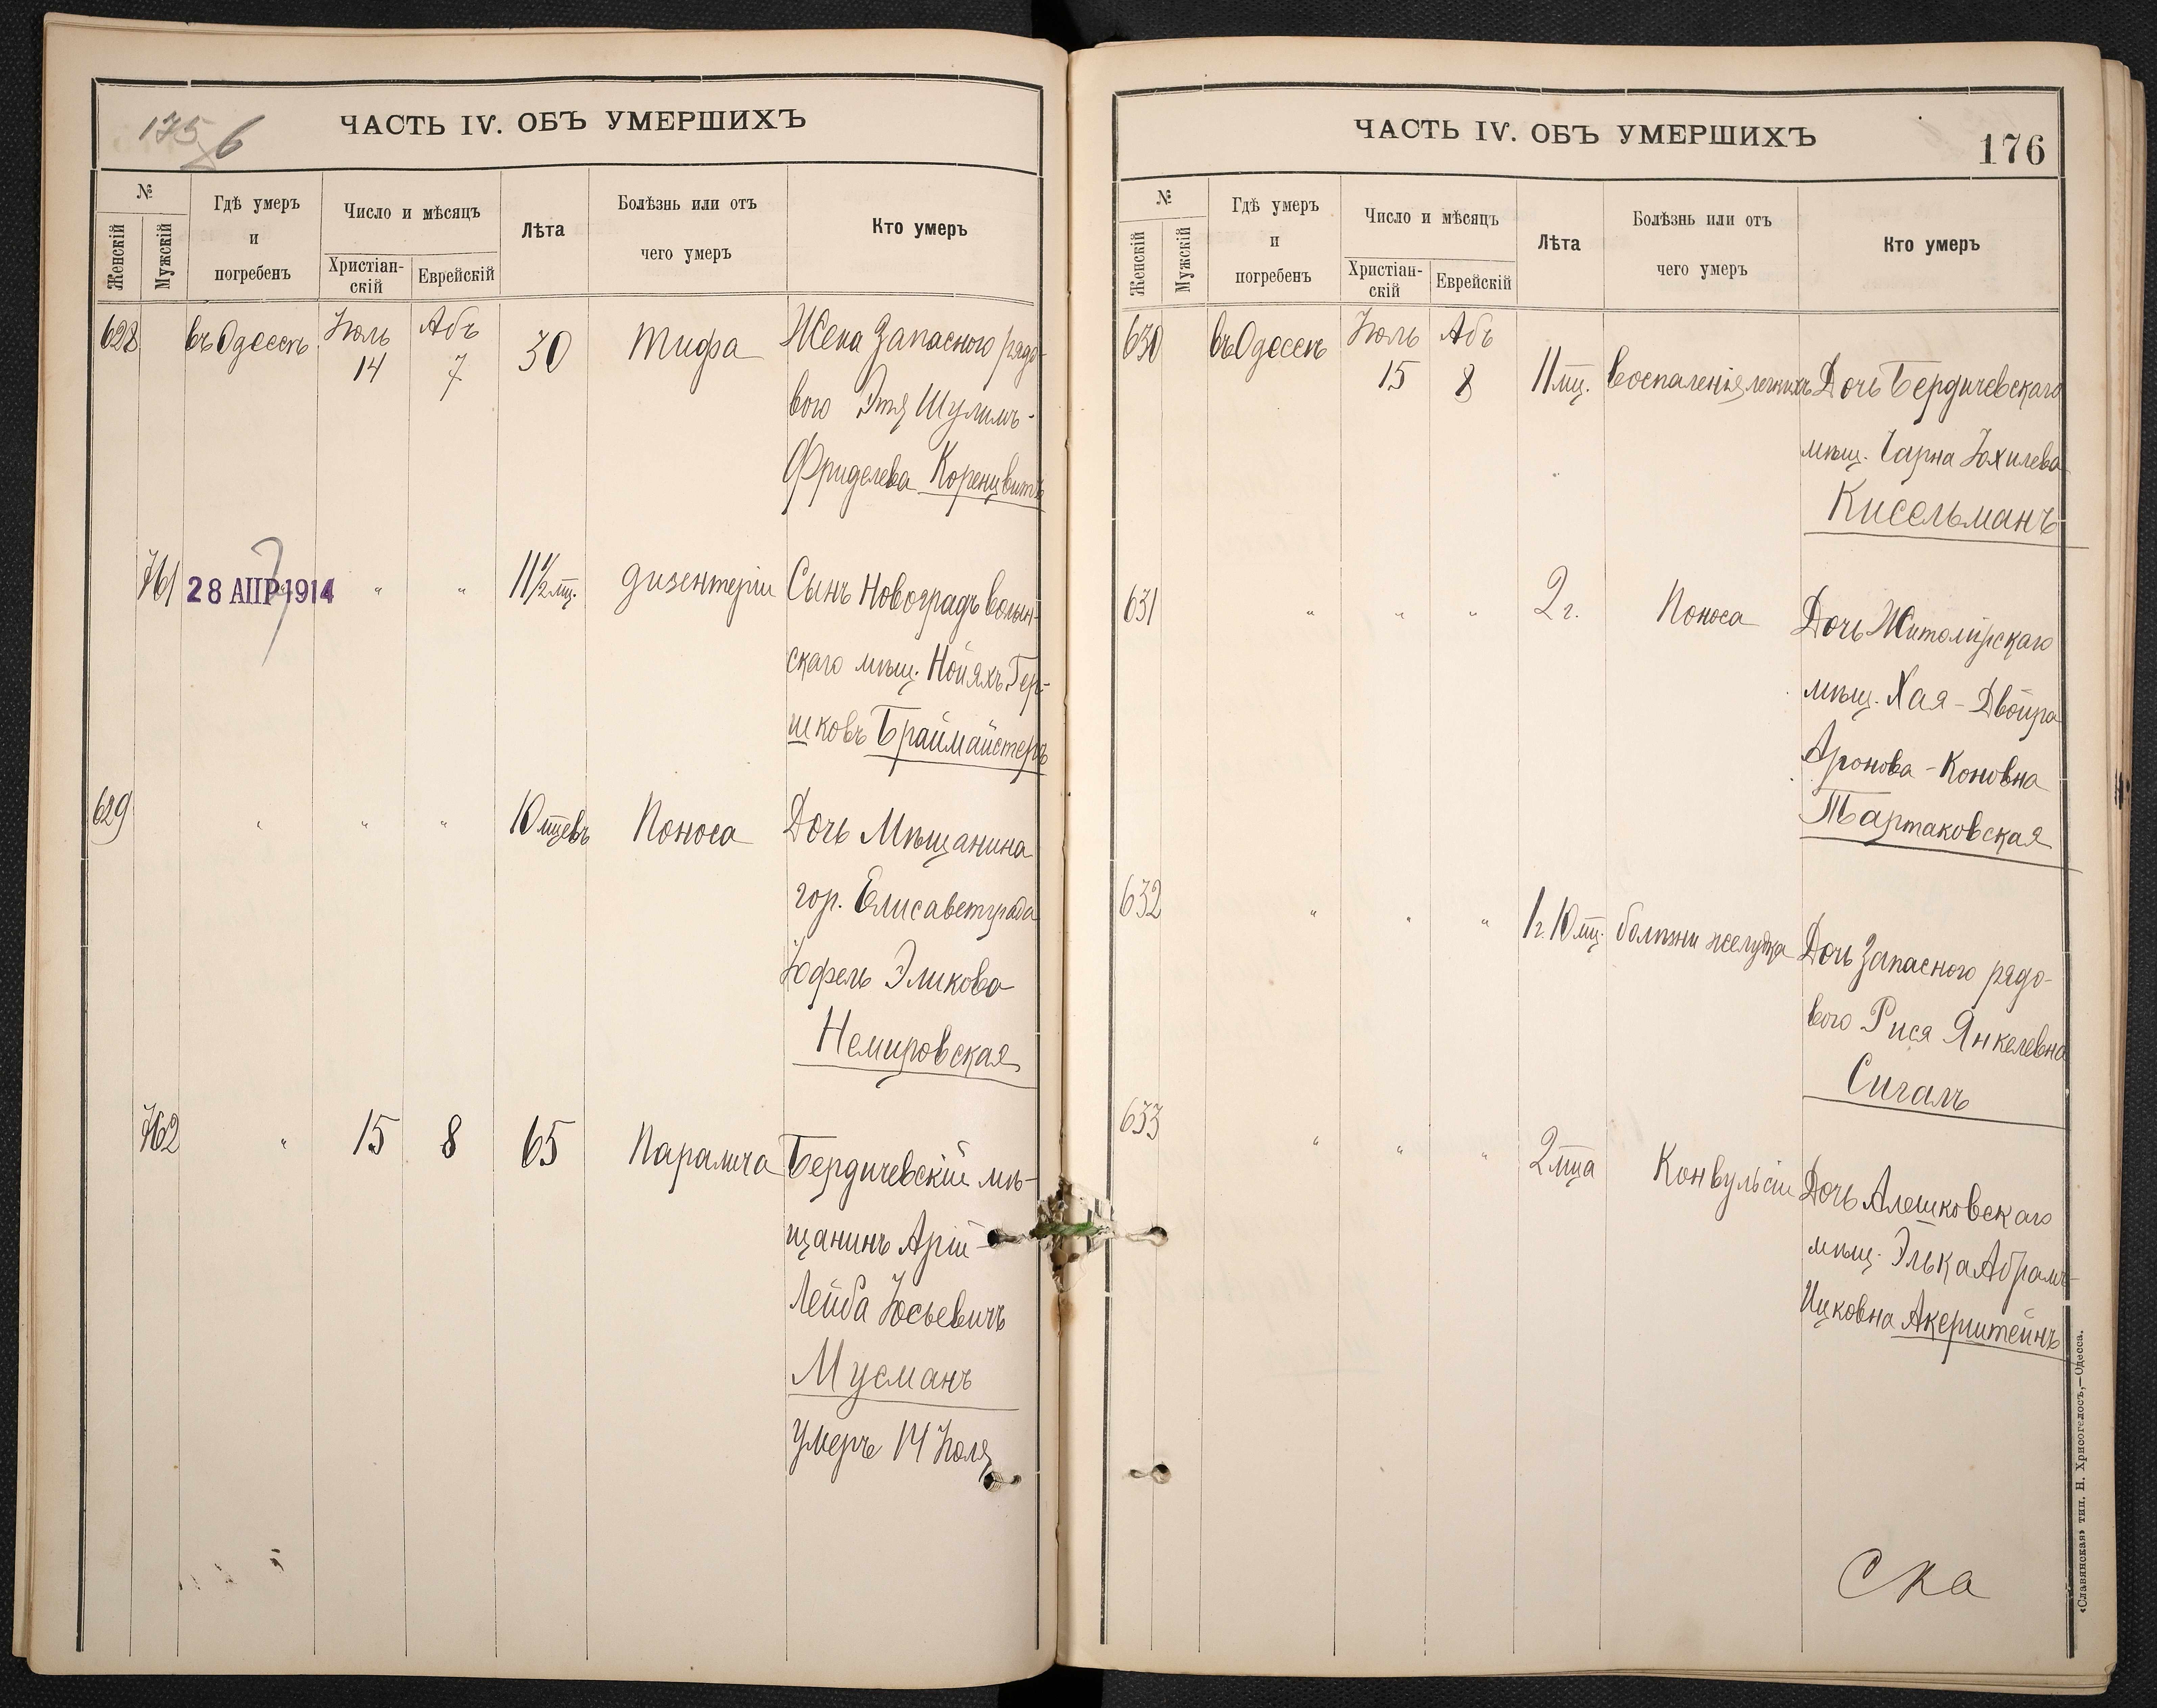 175 б
ЧАСТЬ IV. ОБЪ УМЕРШИХЪ
№
Женскій
Мужскій
Гдѣ умеръ
и
погребенъ
Число и мѣсяцъ
Христіан-
скій
Еврейскій
Лѣта
Болѣзнь или отъ
чего умеръ
Кто умеръ
628 въ Одессѣ Іюль 14 Абъ 7 30 тифа Жена запасного рядо-
вого Этя Шулимъ-
Фриделева Коренцвитъ
761 28 АПР 1914 " " 11½ мц. дизентеріи Сынъ Новоградъволын-
скаго мѣщ. Нойяхъ Гер-
шковъ Браймайстеръ
629 " " " 10 мцевъ Поноса Дочь Мѣщанина
гор. Елисаветграда
Эликова
Немировская
762 " 15 8 65 Паралича Бердичевскій мѣ-
щанинъ Арій-
Лейба Іосьевичъ
Мусманъ
умеръ 14 Іюля
ЧАСТЬ IV. ОБЪ УМЕРШИХЪ
176
№
Женскій
Мужскій
Гдѣ умеръ
и
погребенъ
Число и мѣсяцъ
Христіан-
скій
Еврейскій
Лѣта
Болѣзнь или отъ
чего умеръ
Кто умеръ
630 въ Одессѣ Іюль 15 Абъ 8 11 мц. воспаленія легкихъ Дочь Бердичевскаго
мѣщ. Чарна Іохилева
Кисельманъ
631 " " " 2 г. Поноса Дочь Житомірскаго
мѣщ. Хая-Двойра
Аронова-Коновна
Тартаковская
632 " " " 1 г. 10 мц. болѣзни желудка Дочь запасного рядо-
вого Рися Янкелевна
Сигалъ
633 " " " 2 мца Конвульсіи Дочь Алешковскаго
мѣщ. Элька Абрамъ-
Ицковна Акерштейнъ
ска
«Славянская» тип. Н. Хрисогелосъ,—Одесса.